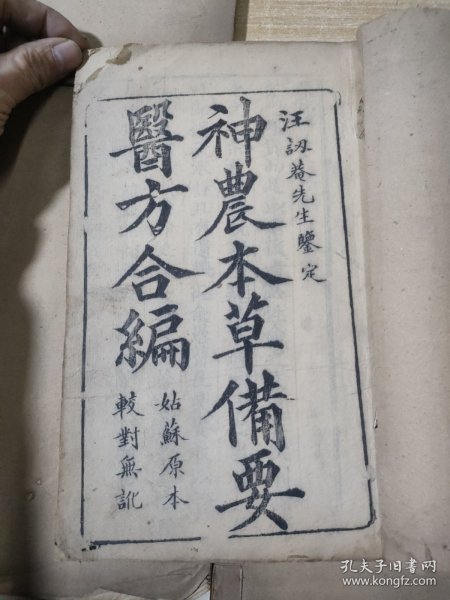 汪訒菴先生鑒定
神農本草備要
醫方合編
姑蘇原本
較對無訛
孔夫子旧书网
www.kongfz.com